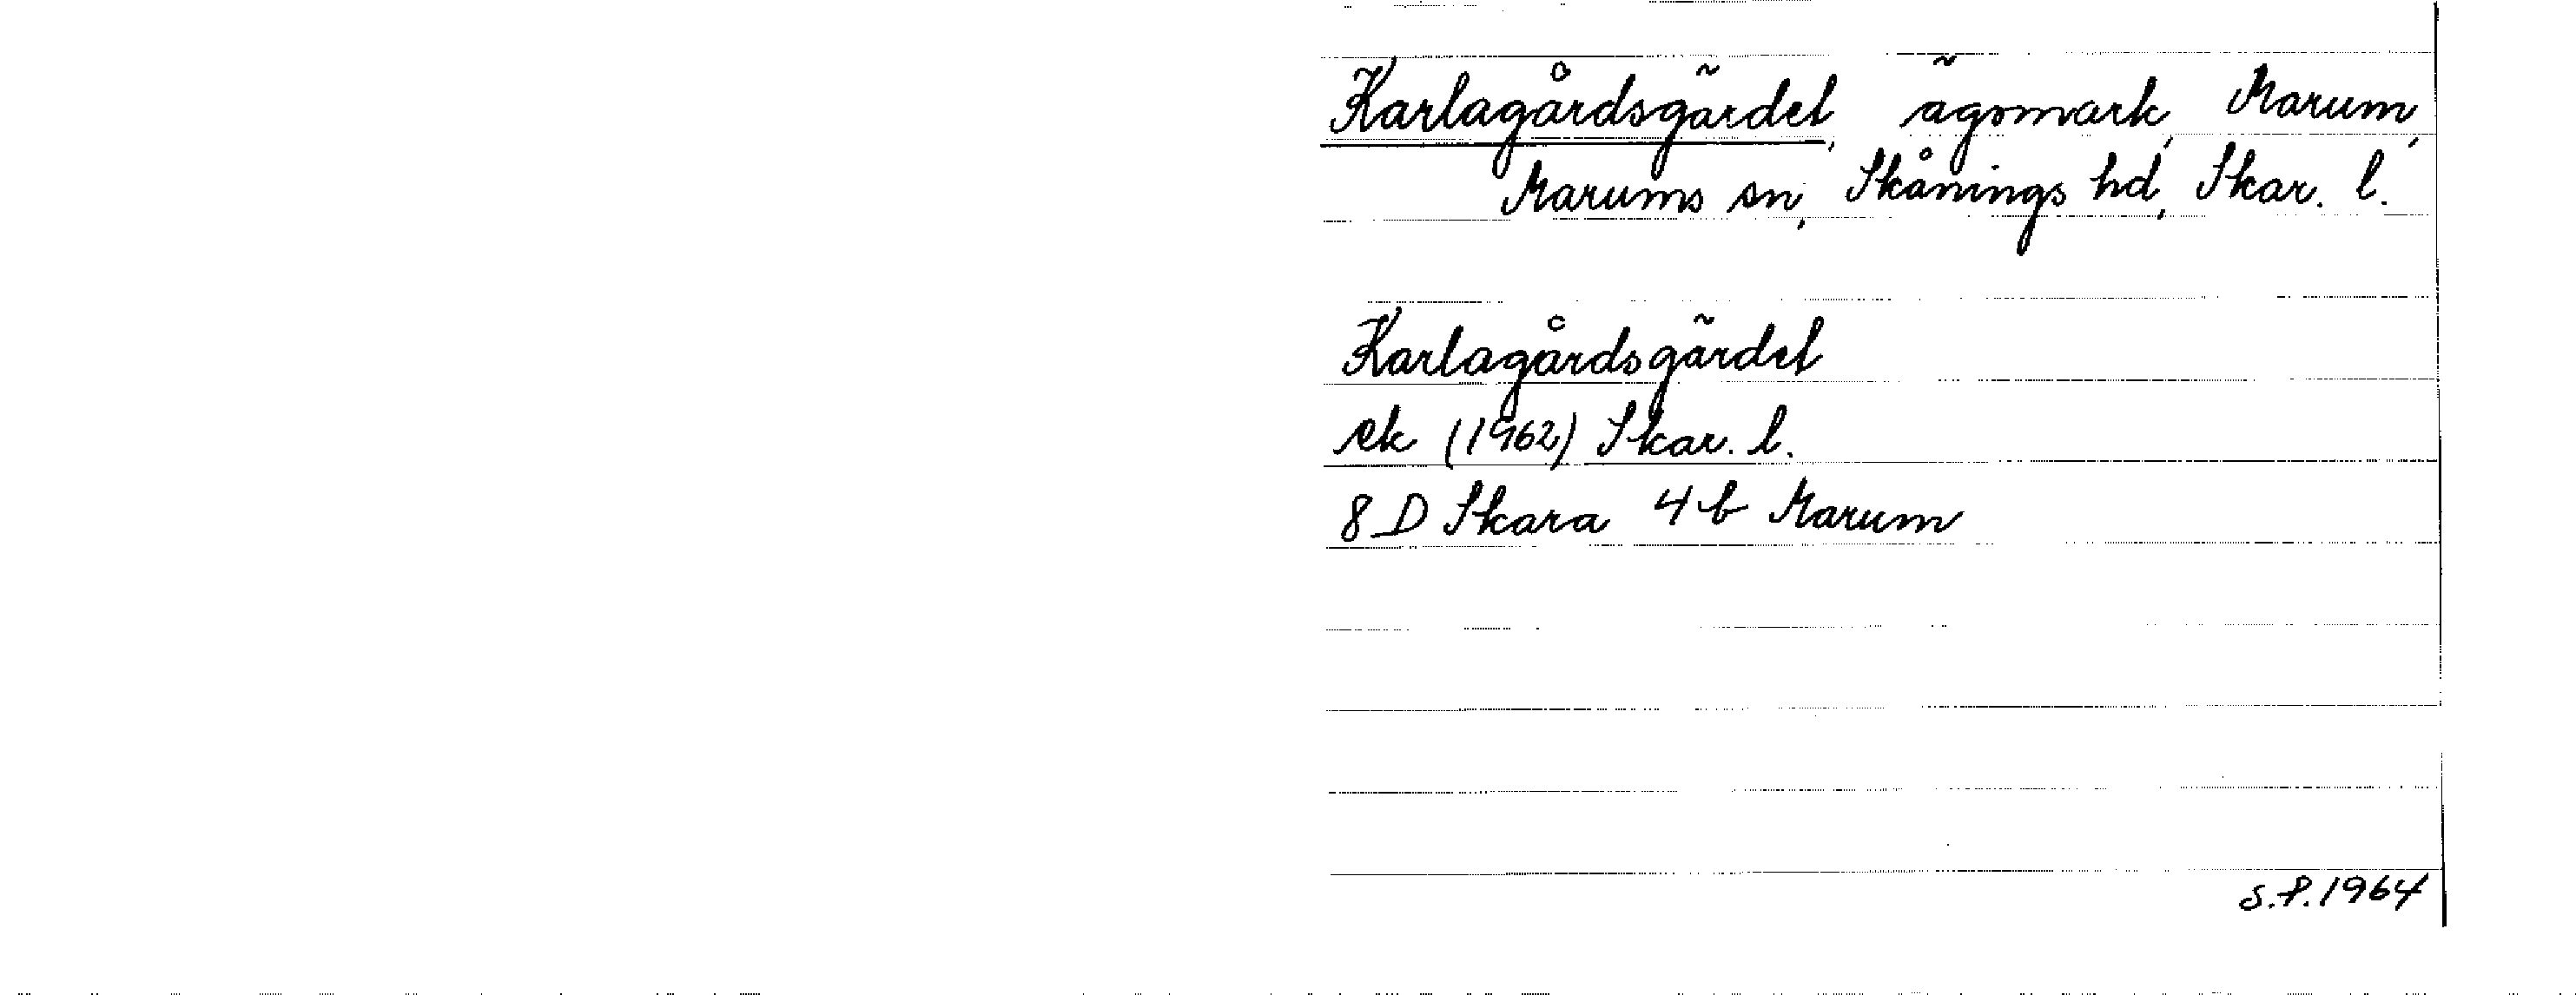 Karlagårdsgärdet, ägomark, Marum,
Marums sn, Skånings hd, Skar. l.
Karlagårdsgärdet
ek (1962) Skar. l.
8 D Skara 4 b Marum
S.P. 1964